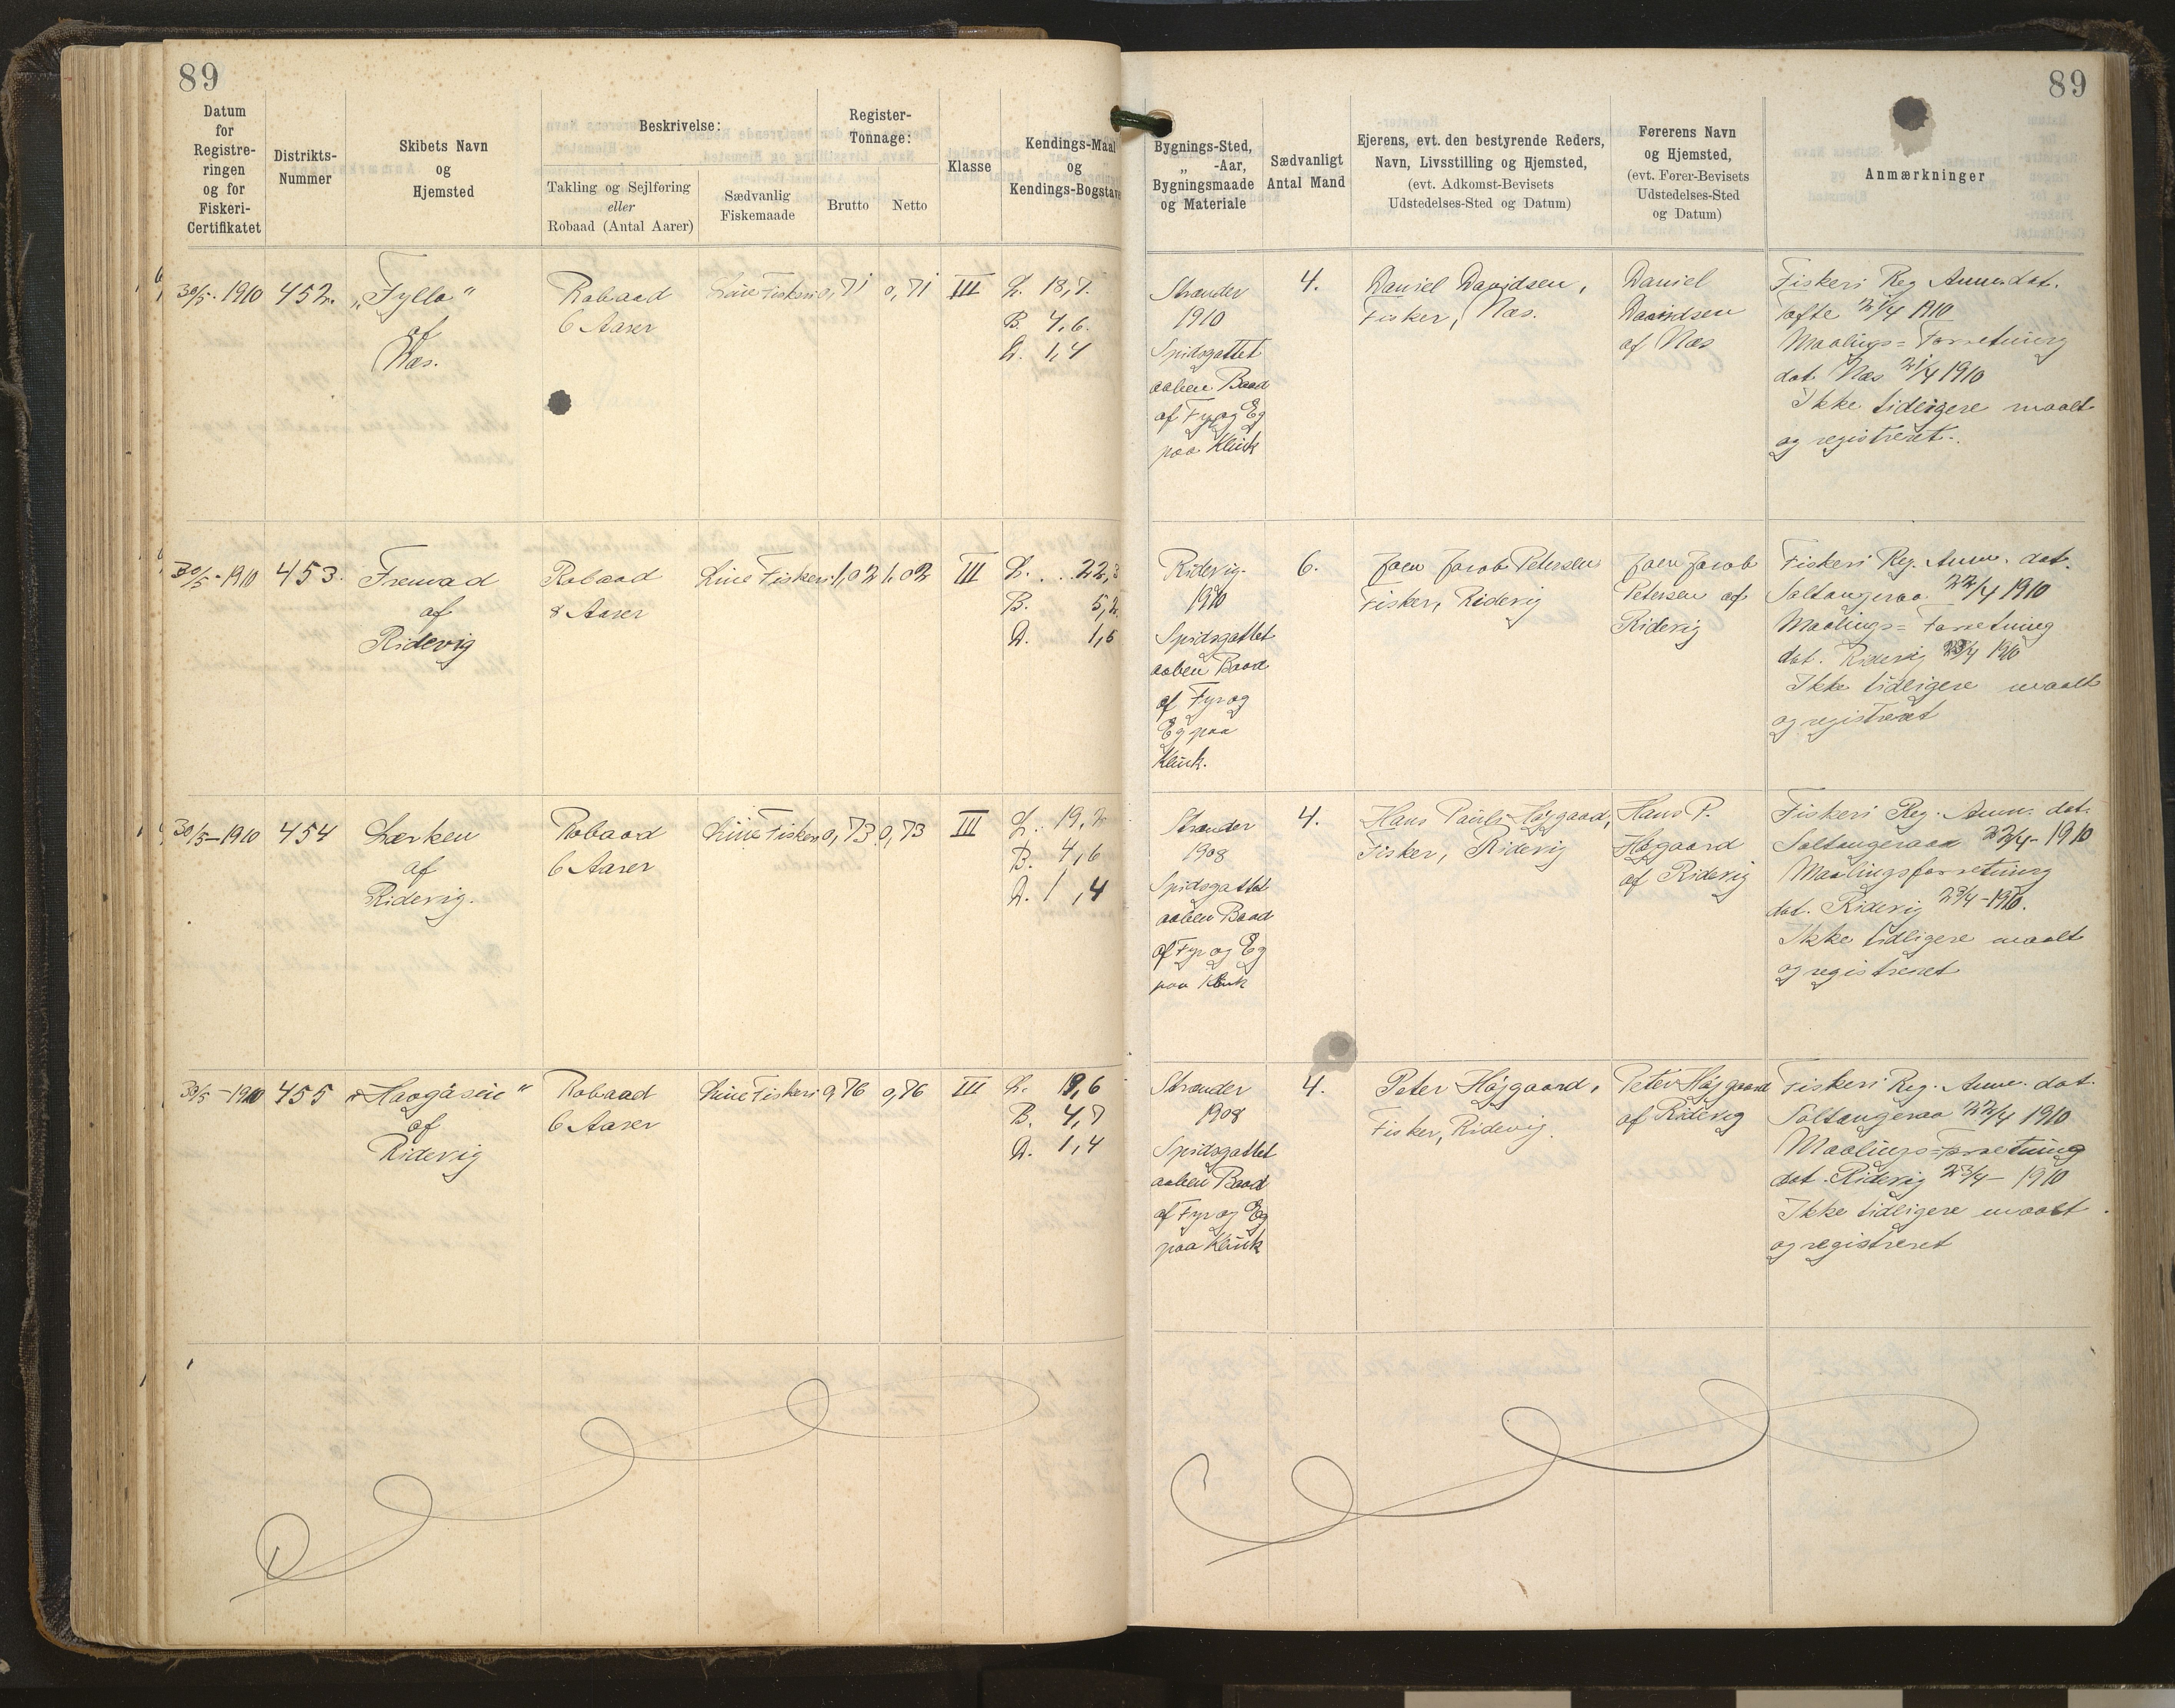 89
89
Datum
for
Registre-
ringen
og for
Fiskeri-
Certifikatet
Distrikts-
Nummer
Skibets Navn
og
Hjemsted
Beskrivelse:
Takling og Sejlføring
eller
Robaad (Antal Aarer)
Sædvanlig
Fiskemaade
Register-
Tonnage:
Brutto
Netto
Klasse
Kendings-Maal
og
Kendings-Bogstave
Bygnings-Sted,
„ -Aar,
Bygningsmaade
og Materiale
Sædvanligt
Antal Mand
Ejerens, evt. den bestyrende Reders,
Navn, Livsstilling og Hjemsted,
(evt. Adkomst-Bevisets
Udstedelses-Sted og Datum)
Førerens Navn
og Hjemsted,
(evt. Fører-Bevisets
Udstedelses-Sted
og Datum)
Anmærkninger
30/5 - 1910
452.
„Fylla“
af
Næs.
Robaad
6 Aarer
Line Fiskeri
0,71
0,71
III
L. 18,7.
B. 4,6.
D. 1,4
Strender
1910
Spidsgattet
aaben Baad
af Fyr og Eg
paa Klink
4.
Daniel Davidsen,
Fisker, Næs.
Daniel
Davidsen
af Næs
Fiskeri Reg Anm. dat.
Tofte 21/4 1910
Maalings=Forretning
dat Næs 21/4 1910
Ikke tidligere maalt
og registreret.
30/5 - 1910
453.
Fremad
af
Ridevig
Robaad
8 Aarer
Line Fiskeri
1,02
1,02
III
L. . . 22,3
B. 5,2
D. 1,6
Ridevig.
1910
Spidsgattet
aaben Baad
af Fyr og
Eg paa
Klink.
6.
Joen Jacob Petersen
Fisker, Ridevig
Joen Jacob
Petersen af
Ridevig
Fiskeri Reg. Anm. dat.
Saltangeraa 22/4 1910
Maalings=Forretning
dat. Ridevig 23/4 1910
Ikke tidligere maalt
og registreret
30/5 - 1910
454
Lærken
af
Ridevig.
Robaad
6 Aarer
Line Fiskeri
0,73
0,73
III
L. 19,2
B. 4,6
D. 1,4
Strender
1908
Spidsgattet
aaben Baad
af Fyr og Eg
paa Klink
4.
Hans Pauli Højgaard,
Fisker, Ridevig
Hans P.
Højgaard
af Ridevig
Fiskeri Reg. Anm. dat.
Saltangeraa 22/4 - 1910
Maalingsforretning
dat. Ridevig 23/4 - 1910.
Ikke tidligere maalt
og registreret
30/5 - 1910
455
af
Ridevig
Robaad
6 Aarer
Line Fiskeri
0,76
0,76
III
L. 19,6
B. 4,7
D. 1,4
Strender
1908
Spidsgattet
aaben Baad
af Fyr og Eg
paa Klink
4.
Peter Højgaard,
Fisker, Ridevig.
Peter Højgaard
af Ridevig
Fiskeri Reg. Anm. dat.
Saltangeraa 22/4 1910
Maalings=Forretning
dat. Ridevig 23/4 - 1910
Ikke tidligere maalt
og registreret